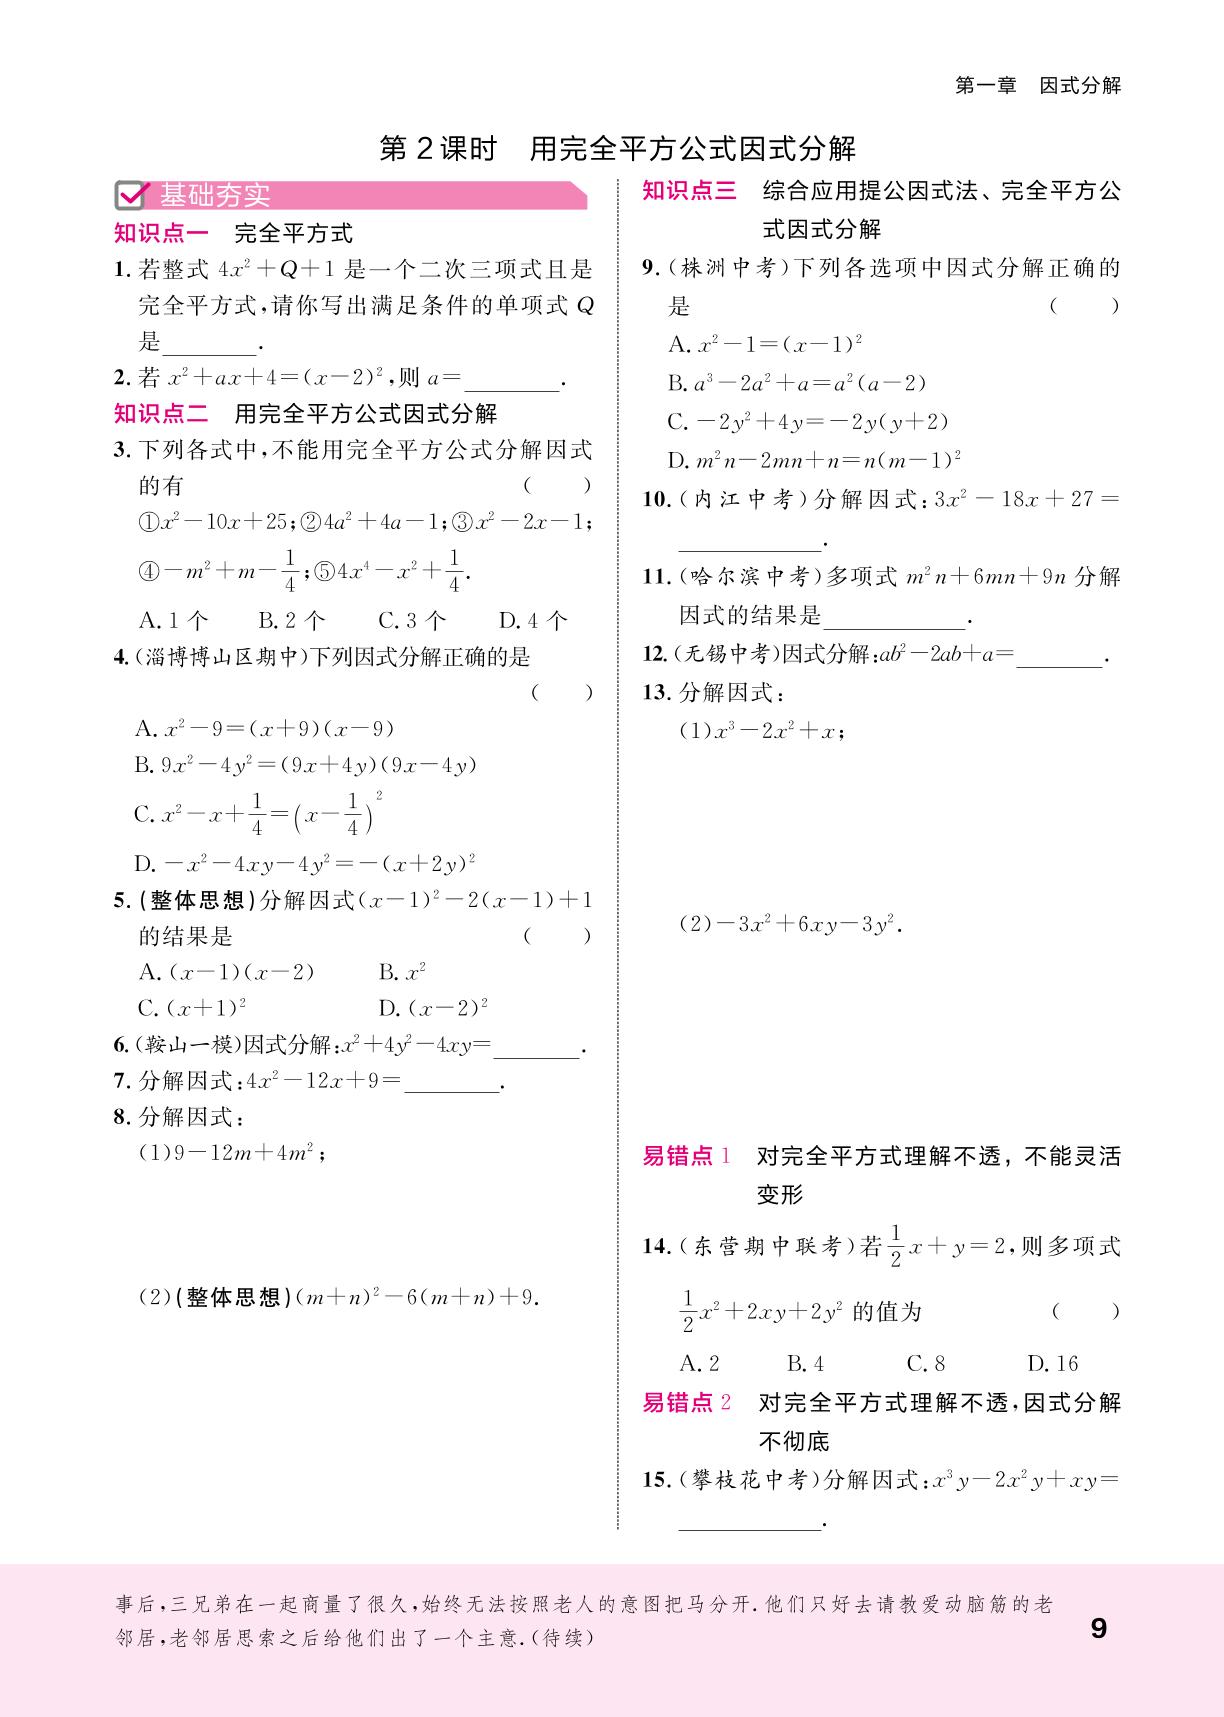 第一章 因式分解
第 2 课时 用完全平方公式因式分解
基础夯实
知识点一 完全平方式
1. 若整式 4x²+Q+1 是一个二次三项式且是
完全平方式,请你写出满足条件的单项式 Q
是________.
2. 若 x²+ax+4=(x-2)²,则 a=________.
知识点二 用完全平方公式因式分解
3. 下列各式中,不能用完全平方公式分解因式
的有 ( )
①x²-10x+25;②4a²+4a-1;③x²-2x-1;
④-m²+m-1/4;⑤4x⁴-x²+1/4.
A. 1 个 B. 2 个 C. 3 个 D. 4 个
4. (淄博博山区期中)下列因式分解正确的是
( )
A. x²-9=(x+9)(x-9)
B. 9x²-4y²=(9x+4y)(9x-4y)
C. x²-x+1/4=(x-1/4)²
D. -x²-4xy-4y²=-(x+2y)²
5. (整体思想)分解因式(x-1)²-2(x-1)+1
的结果是 ( )
A. (x-1)(x-2) B. x²
C. (x+1)² D. (x-2)²
6. (鞍山一模)因式分解:x²+4y²-4xy=________.
7. 分解因式:4x²-12x+9=________.
8. 分解因式:
(1)9-12m+4m²;
(2)(整体思想)(m+n)²-6(m+n)+9.
知识点三 综合应用提公因式法、完全平方公
式因式分解
9. (株洲中考)下列各选项中因式分解正确的
是 ( )
A. x²-1=(x-1)²
B. a³-2a²+a=a²(a-2)
C. -2y²+4y=-2y(y+2)
D. m²n-2mn+n=n(m-1)²
10. (内江中考)分解因式:3x²-18x+27=
____________.
11. (哈尔滨中考)多项式 m²n+6mn+9n 分解
因式的结果是____________.
12. (无锡中考)因式分解:ab²-2ab+a=________.
13. 分解因式:
(1)x³-2x²+x;
(2)-3x²+6xy-3y².
易错点 1 对完全平方式理解不透,不能灵活
变形
14. (东营期中联考)若1/2x+y=2,则多项式
1/2x²+2xy+2y² 的值为 ( )
A. 2 B. 4 C. 8 D. 16
易错点 2 对完全平方式理解不透,因式分解
不彻底
15. (攀枝花中考)分解因式:x³y-2x²y+xy=
____________.
事后,三兄弟在一起商量了很久,始终无法按照老人的意图把马分开. 他们只好去请教爱动脑筋的老
邻居,老邻居思索之后给他们出了一个主意.(待续)
9